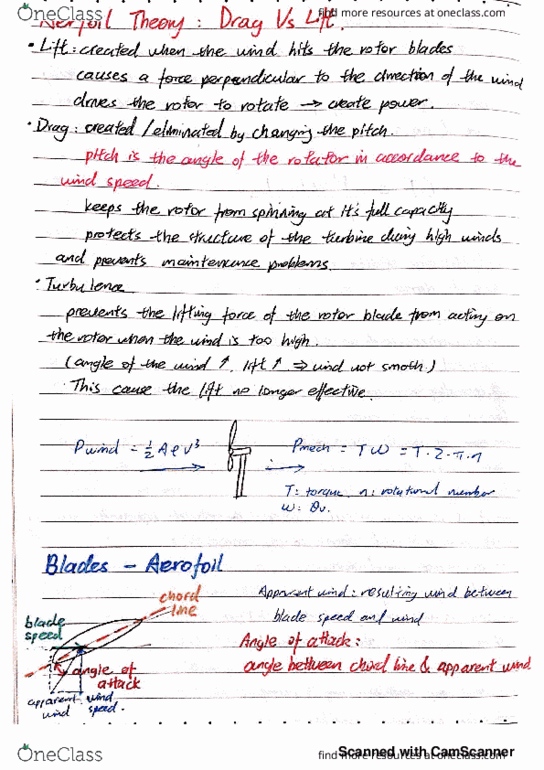 OneClass
find more resources at oneclass.com
Aerofoil Theory : Drag Vs Lift.
• Lift : created when the wind hits the rotor blades
causes a force perpendicular to the direction of the wind
drives the rotor to rotate → create power.
• Drag : created / eliminated by changing the pitch.
pitch is the angle of the rotator in accordance to the
wind speed.
keeps the rotor from spinning at it's full capacity
protects the structure of the turbine during high winds
and prevents maintenance problems.
• Turbulence
prevents the lifting force of the rotor blade from acting on
the rotor when the wind is too high.
(angle of the wind ↑, lift ↑ ⇒ wind not smoth)
This cause the lift no longer effective.
Pwind = ½ A ρ v³
Pmech = T ω = T · 2 · π · n
T : torque, n : rotational number
ω :
Blades - Aerofoil
chord
line
blade
speed
angle of
attack
apparent wind
wind speed.
Apparent wind : resulting wind between
blade speed and wind
Angle of attack :
angle between chord line & apparent wind
OneClass
find more resources at oneclass.com
Scanned with CamScanner